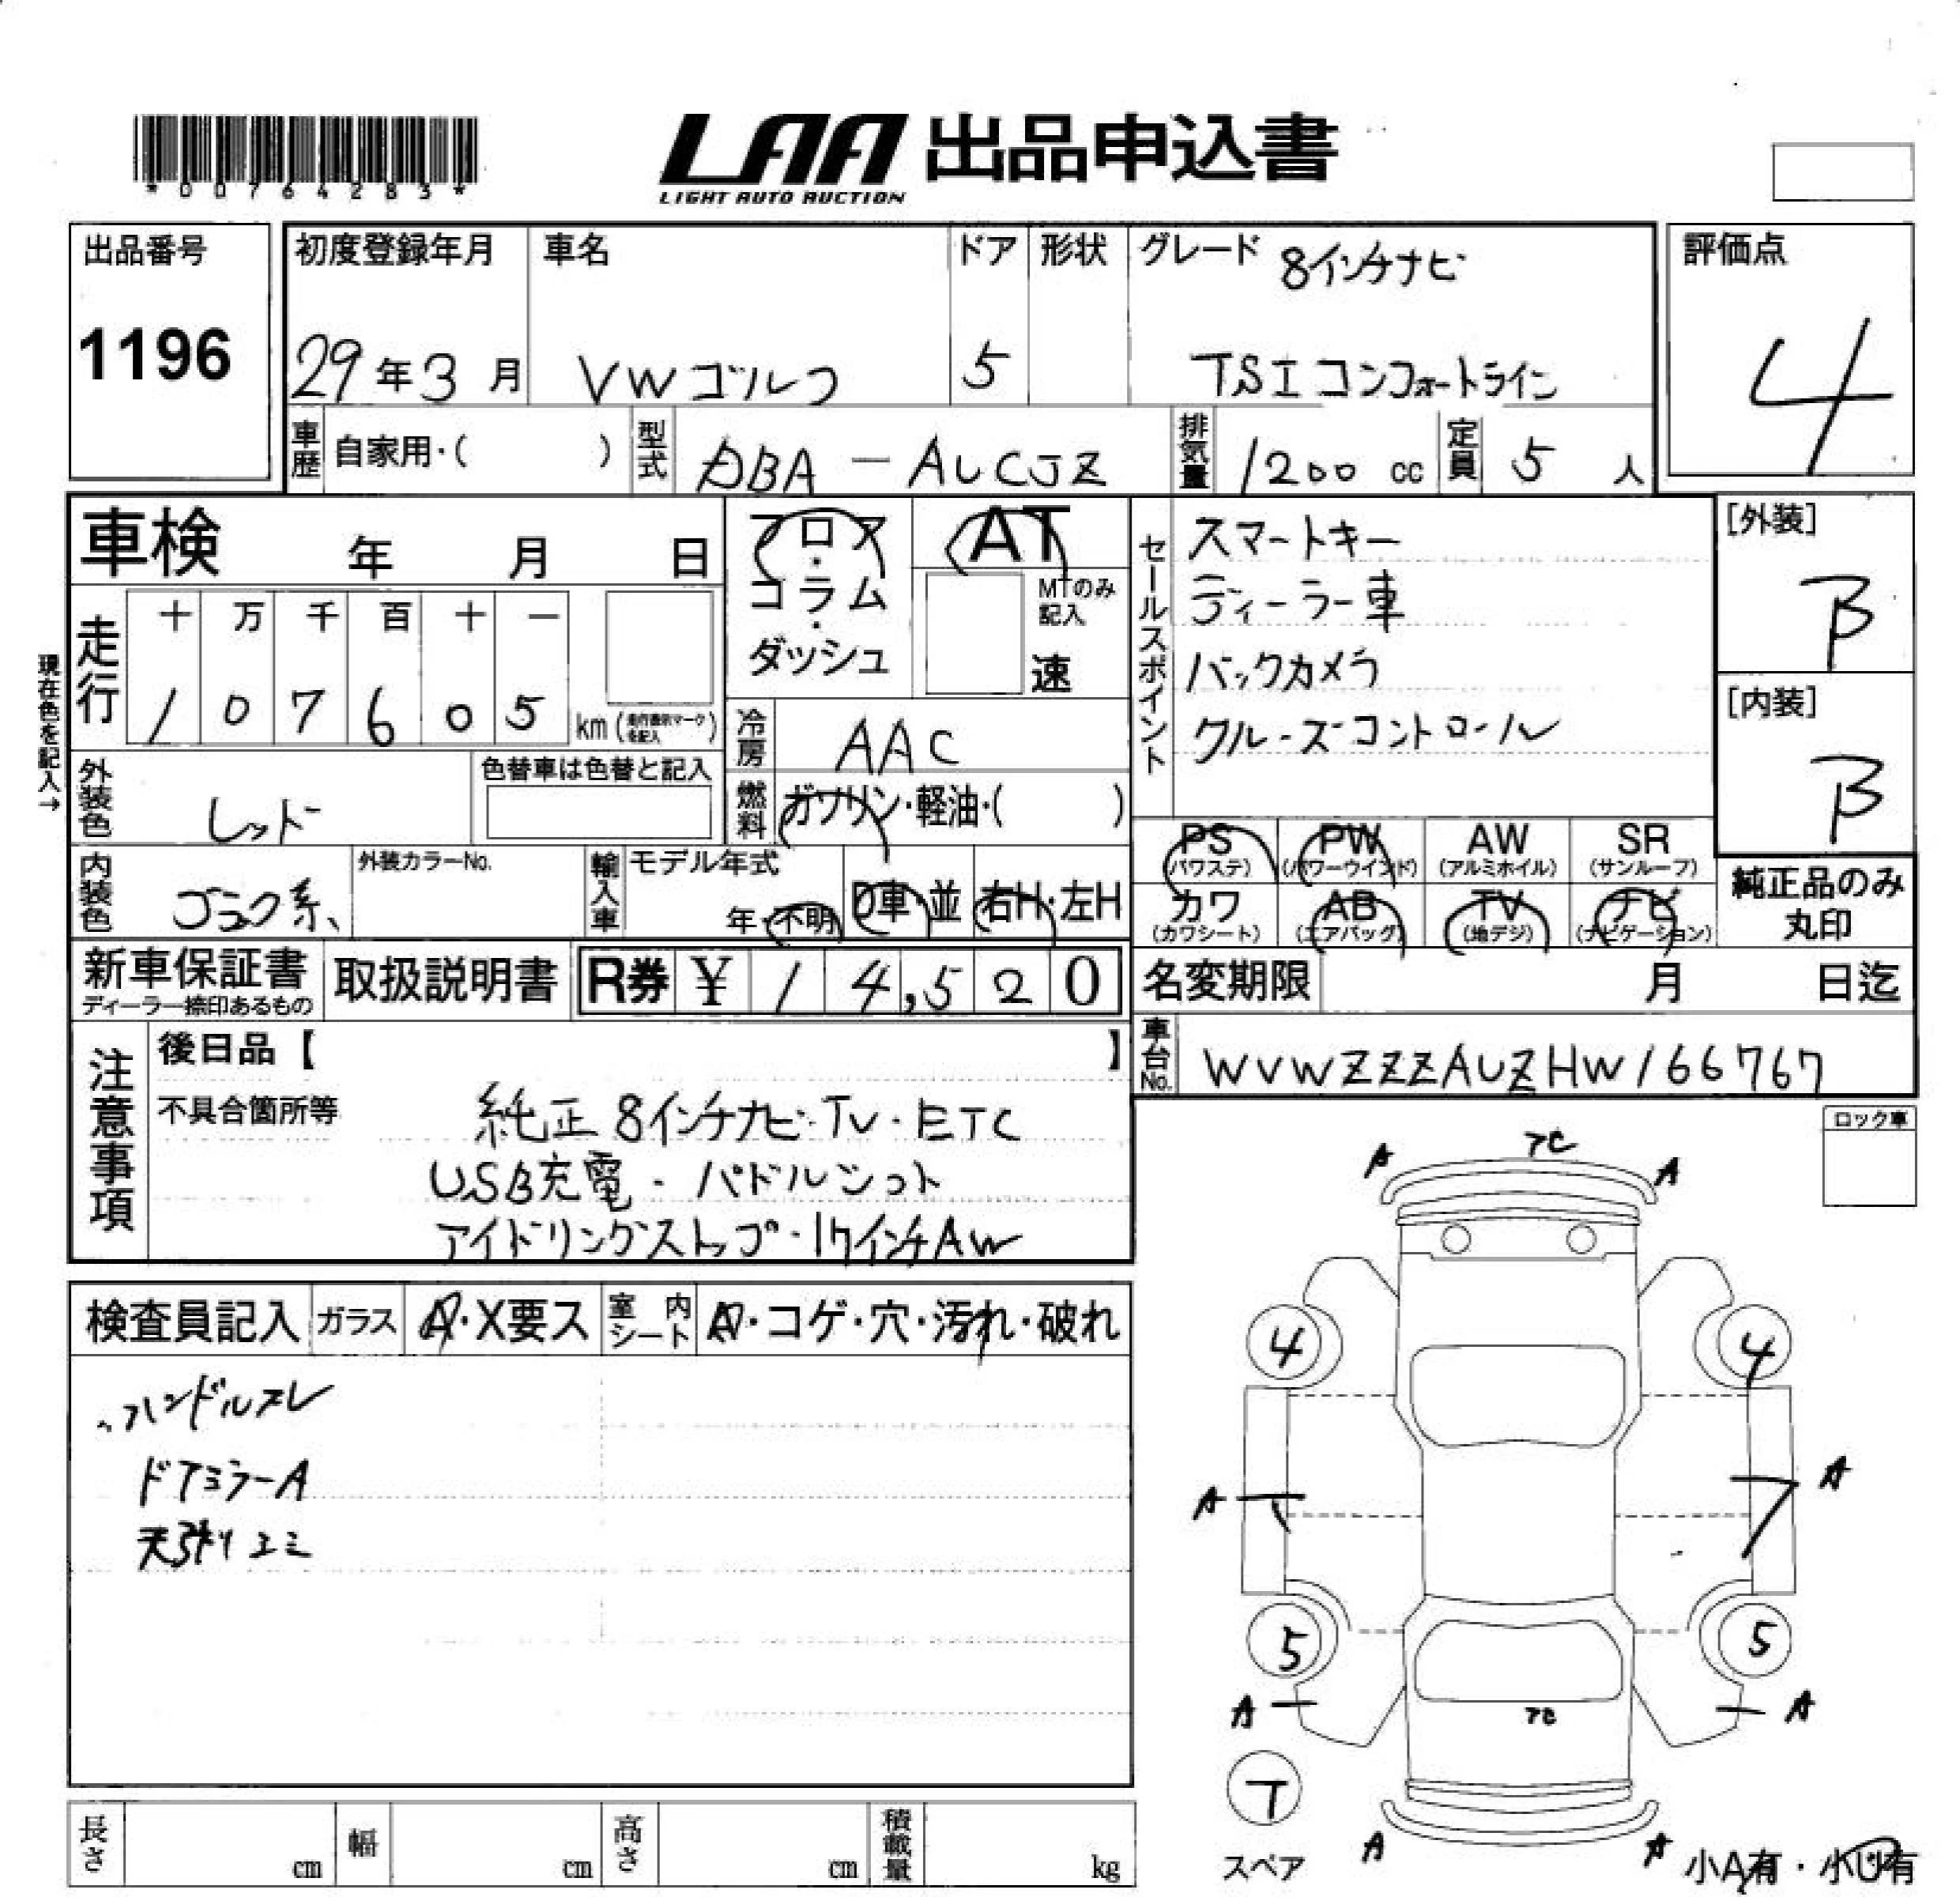 *00764283*
LAA 出品申込書
LIGHT AUTO AUCTION
出品番号
1196
初度登録年月
29年3月
車名
VWゴルフ
ドア
5
形状
グレード 8インチナビ
TSIコンフォートライン
評価点
4
車歴 自家用・( )
型式 DBA-AUCJZ
排気量 1200 cc
定員 5 人
車検 年 月 日
フロア・コラム・ダッシュ
AT
MTのみ記入
速
セールスポイント
スマートキー
ディーラー車
バックカメラ
クルーズコントロール
[外装]
B
[内装]
B
現在色を記入→
走行
十 万 千 百 十 一
1 0 7 6 0 5 km (走行表示マークを記入)
冷房 AAC
外装色 レッド
色替車は色替と記入
燃料 ガソリン・軽油・( )
PS (パワステ)
PW (パワーウインド)
AW (アルミホイル)
SR (サンルーフ)
カワ (カワシート)
AB (エアバッグ)
TV (地デジ)
ナビ (ナビゲーション)
純正品のみ
丸印
内装色 ブラック系
外装カラーNo.
輸入車 モデル年式
年・不明
D車・並
右H・左H
新車保証書
ディーラー捺印あるもの
取扱説明書
R券 ¥ 14,520
名変期限 月 日迄
車台No. WVWZZZAUZHW166767
注意事項
後日品【 】
不具合箇所等
純正8インチナビ・TV・ETC
USB充電・パドルシフト
アイドリングストップ・17インチAW
ロック車
検査員記入
ガラス A・X要ス
室内シート A・コゲ・穴・汚れ・破れ
ハンドルスレ
ドアミラーA
天張リユミ
A
A
4
4
A
A
5
5
A
A
T
スペア
A
A
小A有・小U有
長さ cm
幅 cm
高さ cm
積載量 kg